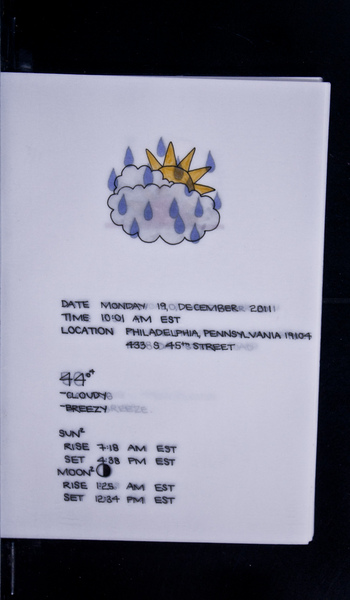 DATE MONDAY 19, DECEMBER 2011
TIME 10:01 AM EST
LOCATION PHILADELPHIA, PENNSYLVANIA 19104
433 S 45TH STREET
44°F
-CLOUDY
-BREEZY
SUN²
RISE 7:18 AM EST
SET 4:38 PM EST
MOON²
RISE 1:25 AM EST
SET 12:34 PM EST